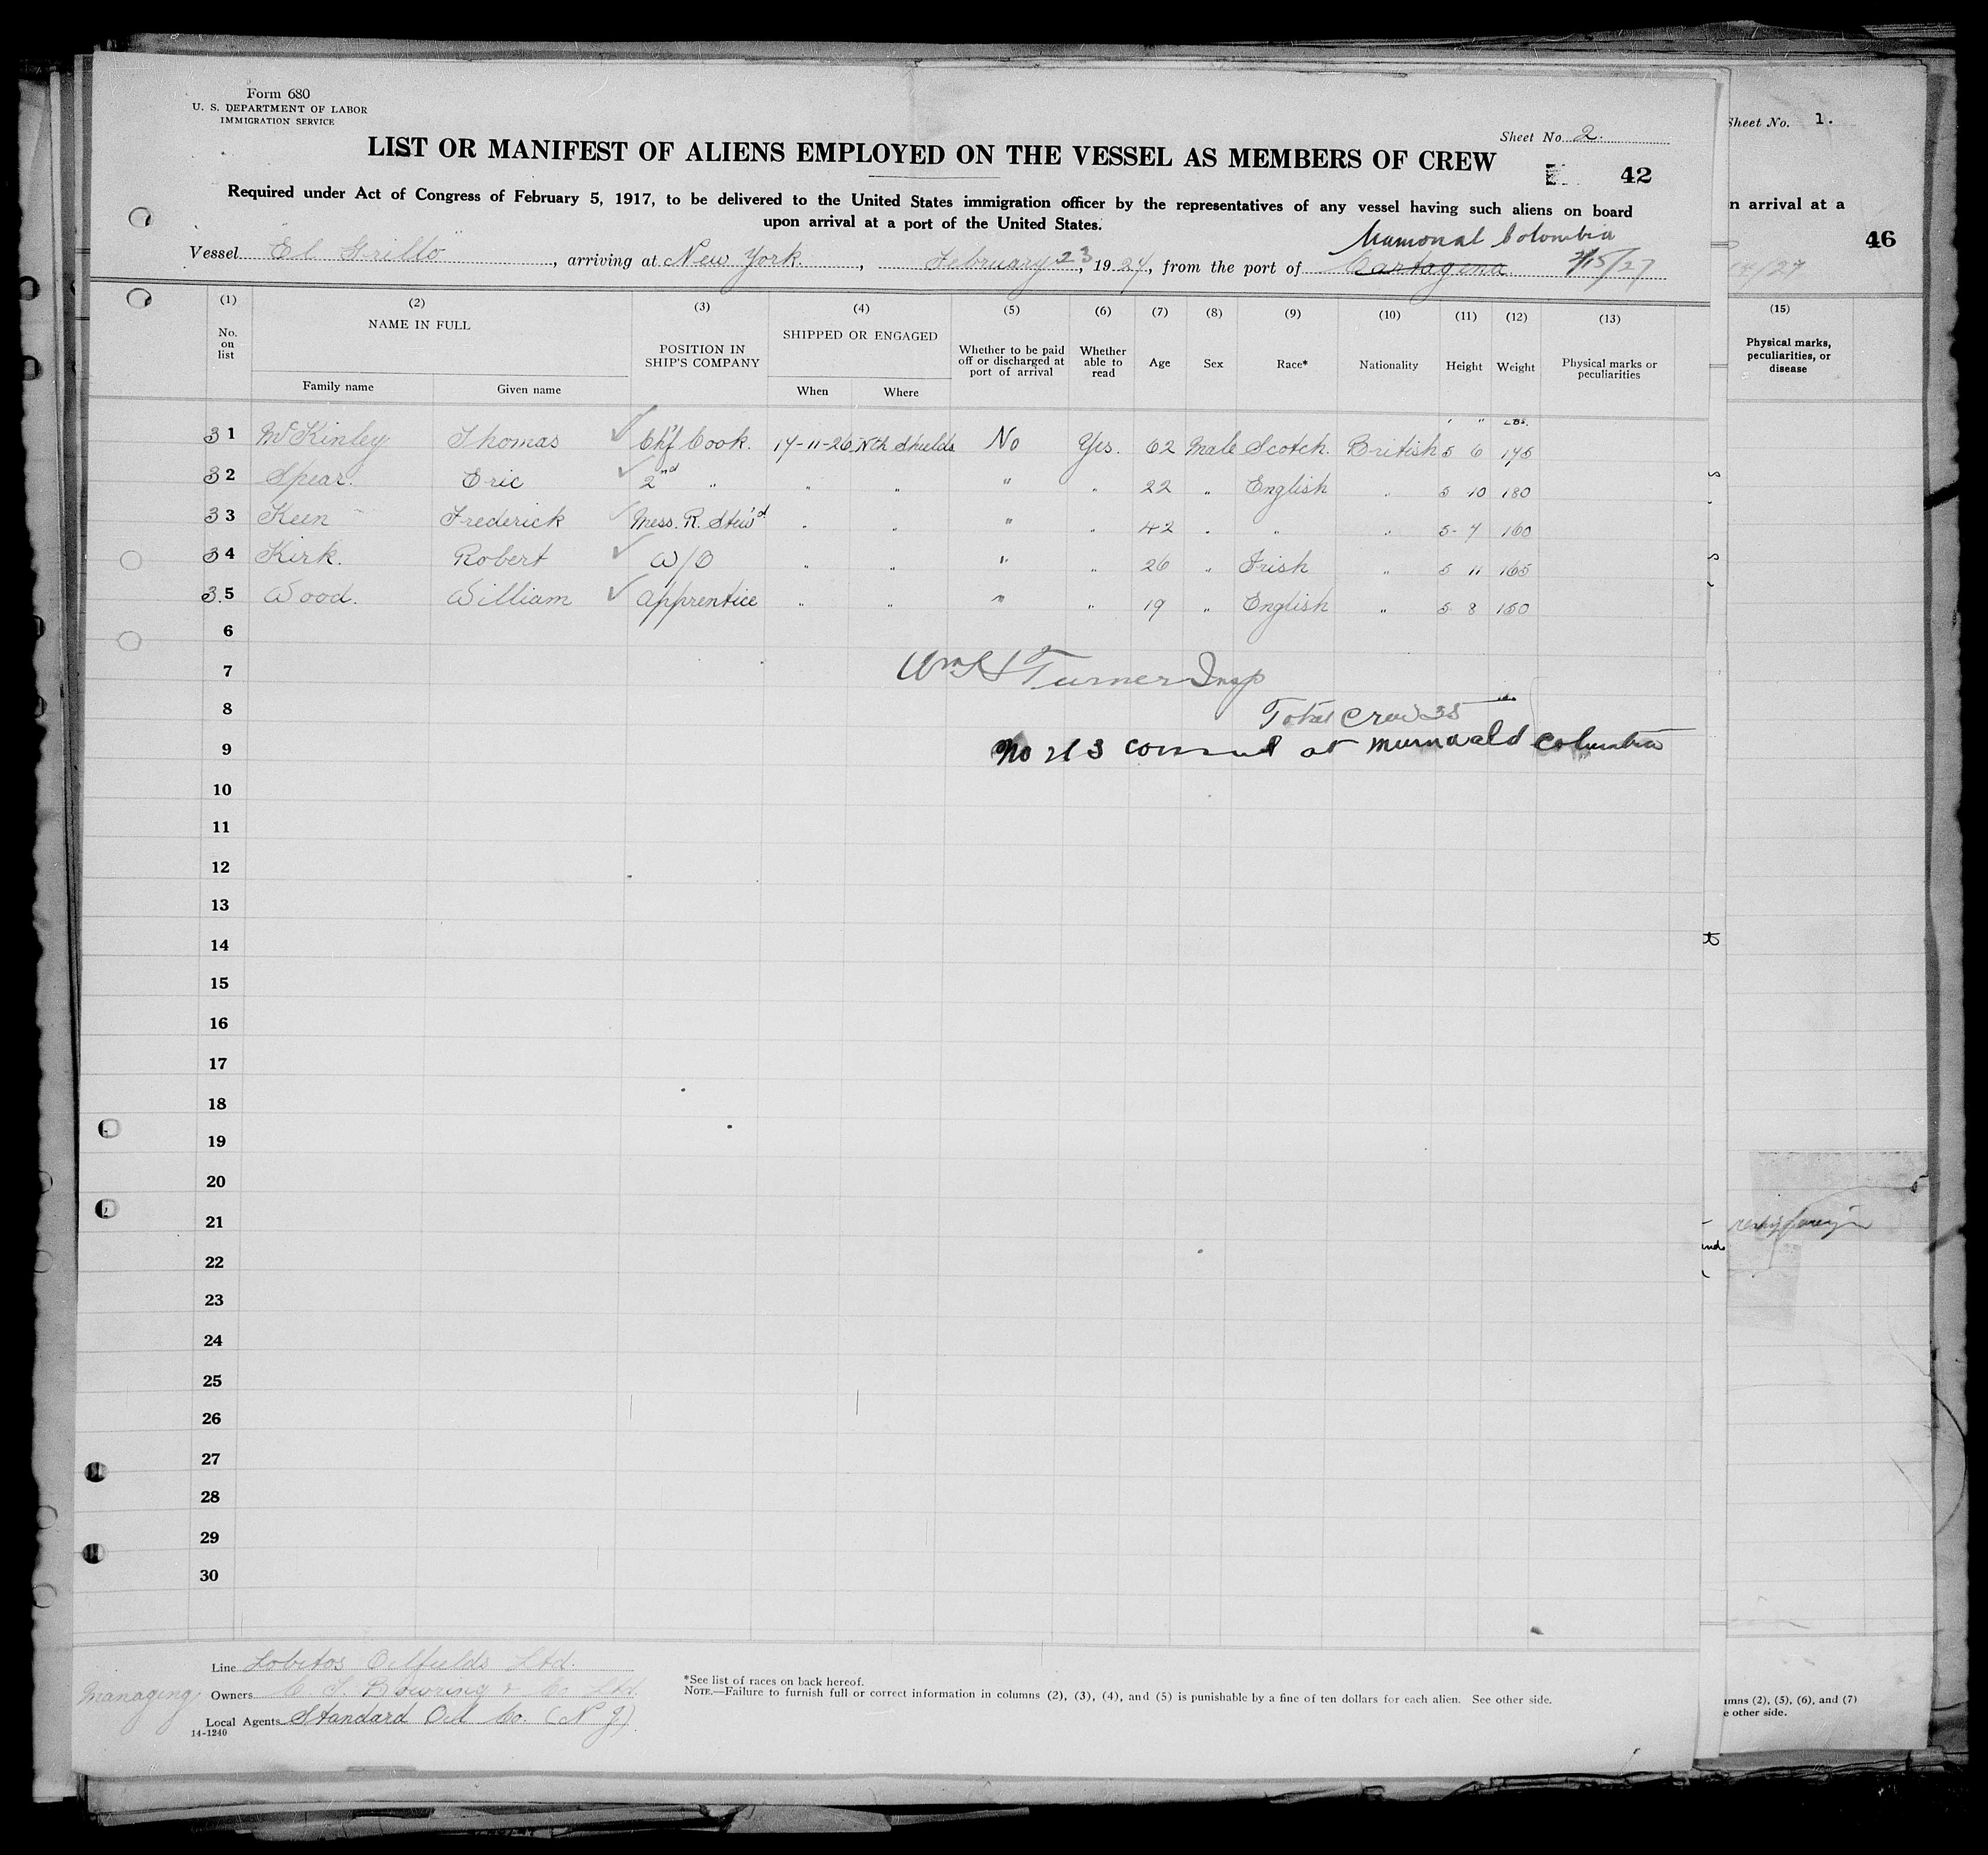 Form 680
U. S. DEPARTMENT OF LABOR
IMMIGRATION SERVICE
Sheet No. 2.
LIST OR MANIFEST OF ALIENS EMPLOYED ON THE VESSEL AS MEMBERS OF CREW
42
Required under Act of Congress of February 5, 1917, to be delivered to the United States immigration officer by the representatives of any vessel having such aliens on board
upon arrival at a port of the United States.
Mamonal Colombia
Vessel "El Grillo", arriving at New York, February 23, 1927, from the port of Cartagena 2/15/27
(1) (2) (3) (4) (5) (6) (7) (8) (9) (10) (11) (12) (13)
No. on list NAME IN FULL Family name Given name POSITION IN SHIP'S COMPANY SHIPPED OR ENGAGED When Where Whether to be paid off or discharged at port of arrival Whether able to read Age Sex Race* Nationality Height Weight Physical marks or peculiarities
' " LBS.
31 McKinley Thomas ✓ Chf Cook. 17-11-26 Nth Shields No Yes. 62 Male Scotch. British 5 6 175
32 Spear. Eric ✓ 2nd " " " " " 22 " English " 5 10 180
33 Keen Frederick ✓ Mess. R. Stew'd " " " " 42 " " " 5 7 160
34 Kirk. Robert ✓ W/O " " " " 26 " Irish " 5 11 165
35 Wood. William ✓ Apprentice " " " " 19 " English " 5 8 150
6
7 Wm H Turner Insp
8 Total Crew 35
9 No U S consul at Columbia
10
11
12
13
14
15
16
17
18
19
20
21
22
23
24
25
26
27
28
29
30
Line Lobitos Oilfields Ltd.
Managing Owners C. T. Bowring & Co Ltd.
Local Agents Standard Oil Co. (N J.)
14-1240
*See list of races on back hereof.
NOTE.—Failure to furnish full or correct information in columns (2), (3), (4), and (5) is punishable by a fine of ten dollars for each alien. See other side.
Sheet No. 1.
n arrival at a
46
/27
(15)
Physical marks,
peculiarities, or
disease
umns (2), (5), (6), and (7)
e other side.